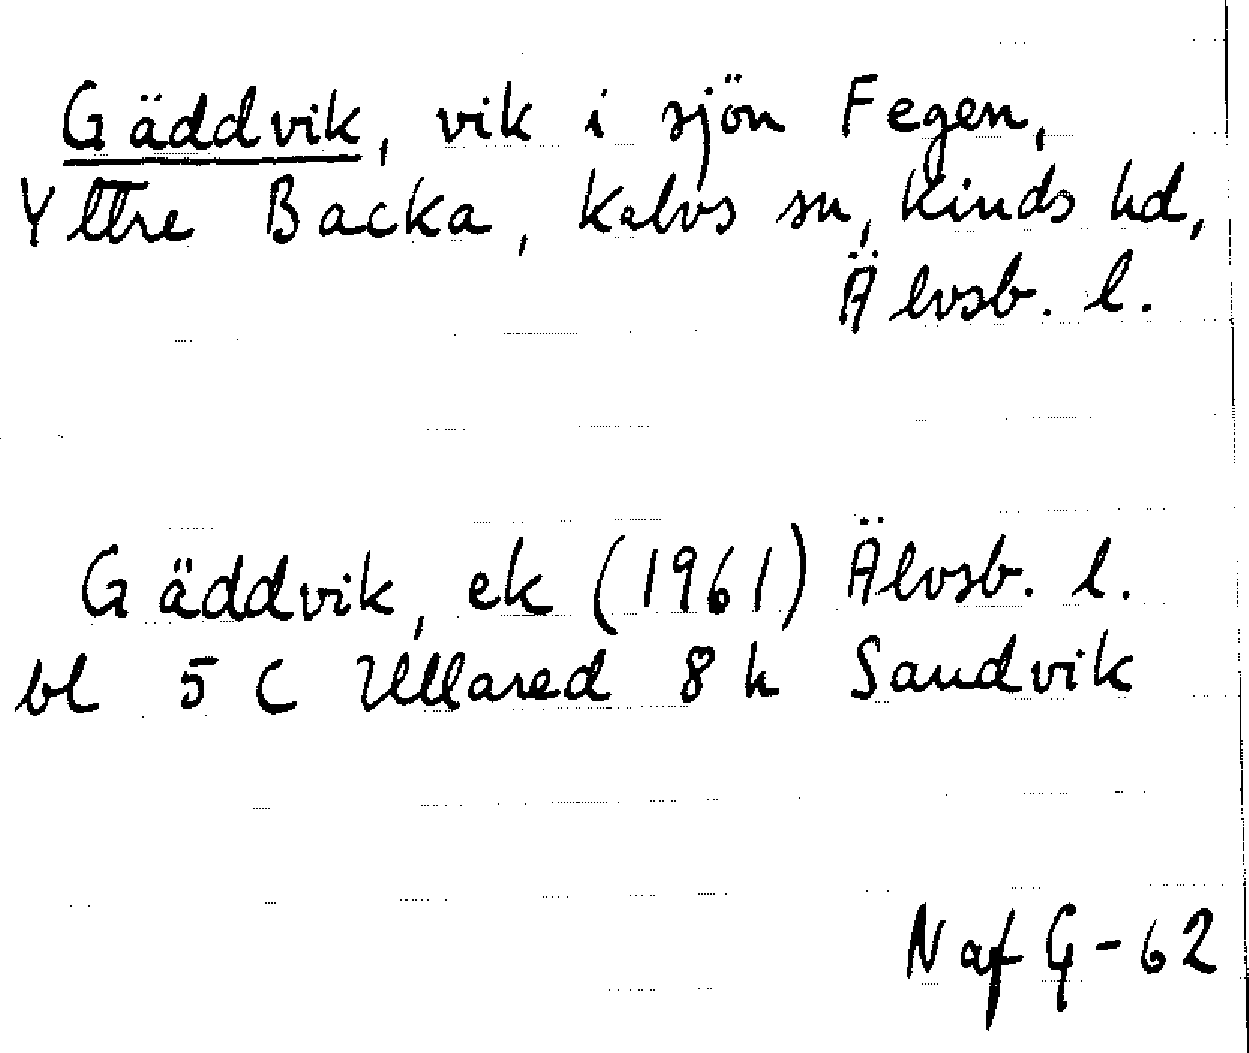 Gäddvik, vik i sjön Fegen,
Yttre Backa, Kalvs sn, Kinds hd,
Älvsb. l.
Gäddvik, ek (1961) Älvsb. l.
bl 5 C Ullared 8 h Sandvik
N af G-62